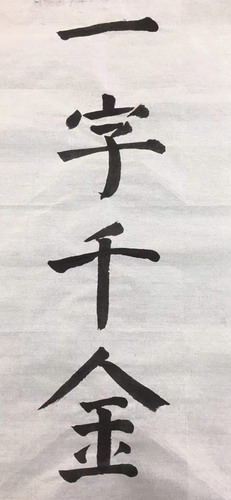 一字千金